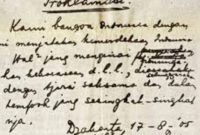 Proklamasi.
Kami bangsa Indonesia dengan
ini menjatakan kemerdekaan Indonesia
Hal2 jang mengenai
kekoeasaan d.l.l.,
dengan tjara saksama dan dalam
tempoh jang sesingkat-singkat
nja.
Djakarta 17 - 8 - '05